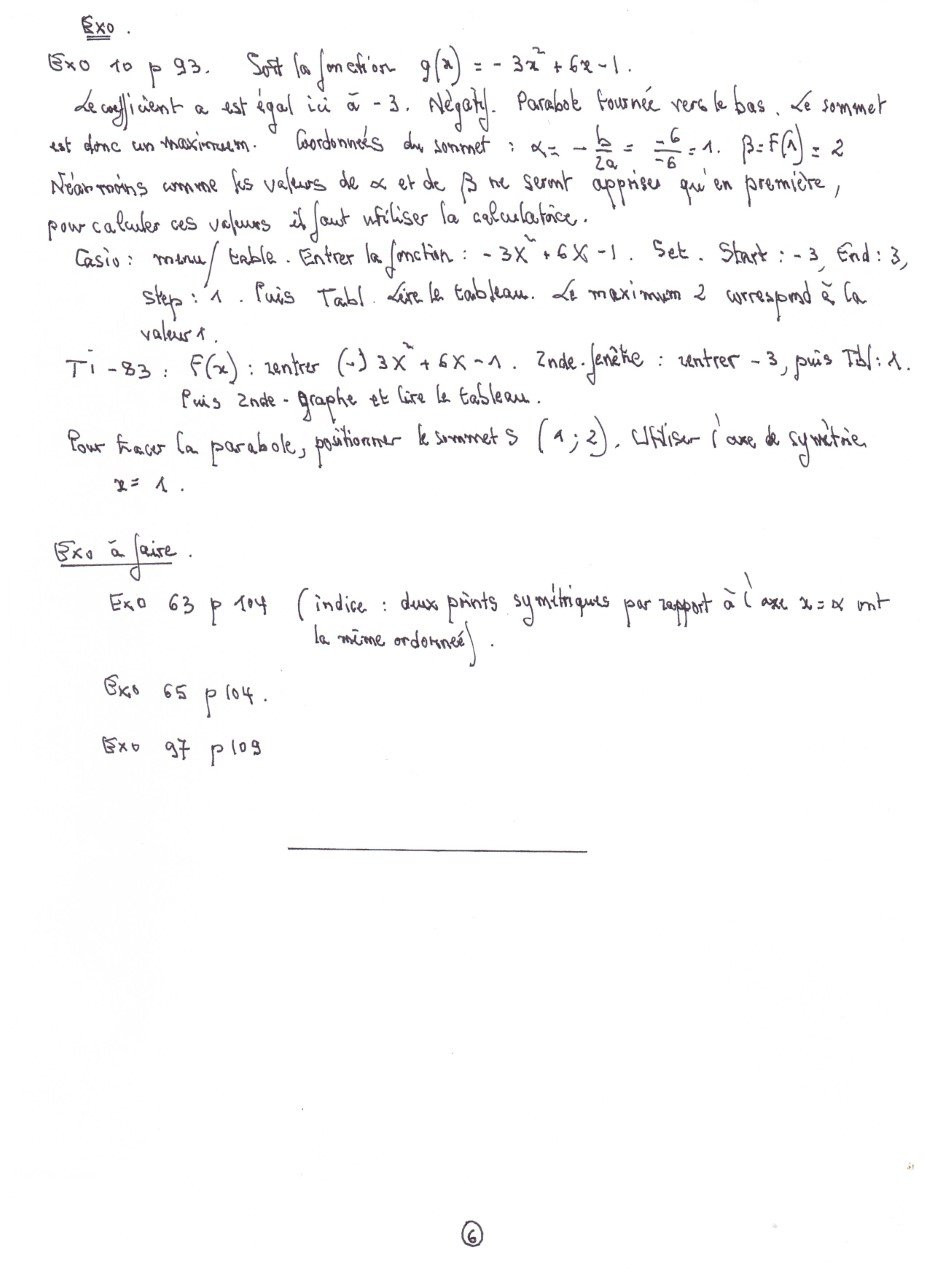 Exo.
Exo 10 p 93. Soit la fonction g(x) = - 3x² + 6x - 1.
Le coefficient a est égal ici à - 3. Négatif. Parabole tournée vers le bas. Le sommet
est donc un maximum. Coordonnées du sommet : α = - b/2a = -6/-6 = 1. β = F(1) = 2
Néanmoins comme les valeurs de α et de β ne seront apprises qu'en première,
pour calculer ces valeurs il faut utiliser la calculatrice.
Casio : menu/ table. Entrer la fonction : - 3X² + 6X - 1. Set. Start : - 3, End : 3,
step : 1. Puis Tabl. Lire le tableau. Le maximum 2 correspond à la
valeur 1.
Ti - 83 : F(x) : rentrer (-) 3X² + 6X - 1. 2nde. fenêtre : rentrer - 3, puis Tbl : 1.
Puis 2nde - graphe et lire le tableau.
Pour tracer la parabole, positionner le sommet S (1 ; 2). Utiliser l'axe de symétrie
x = 1.
Exo à faire.
Exo 63 p 104 (indice : deux points symétriques par rapport à l'axe x = α ont
la même ordonnée).
Exo 65 p 104.
Exo 97 p 109
6